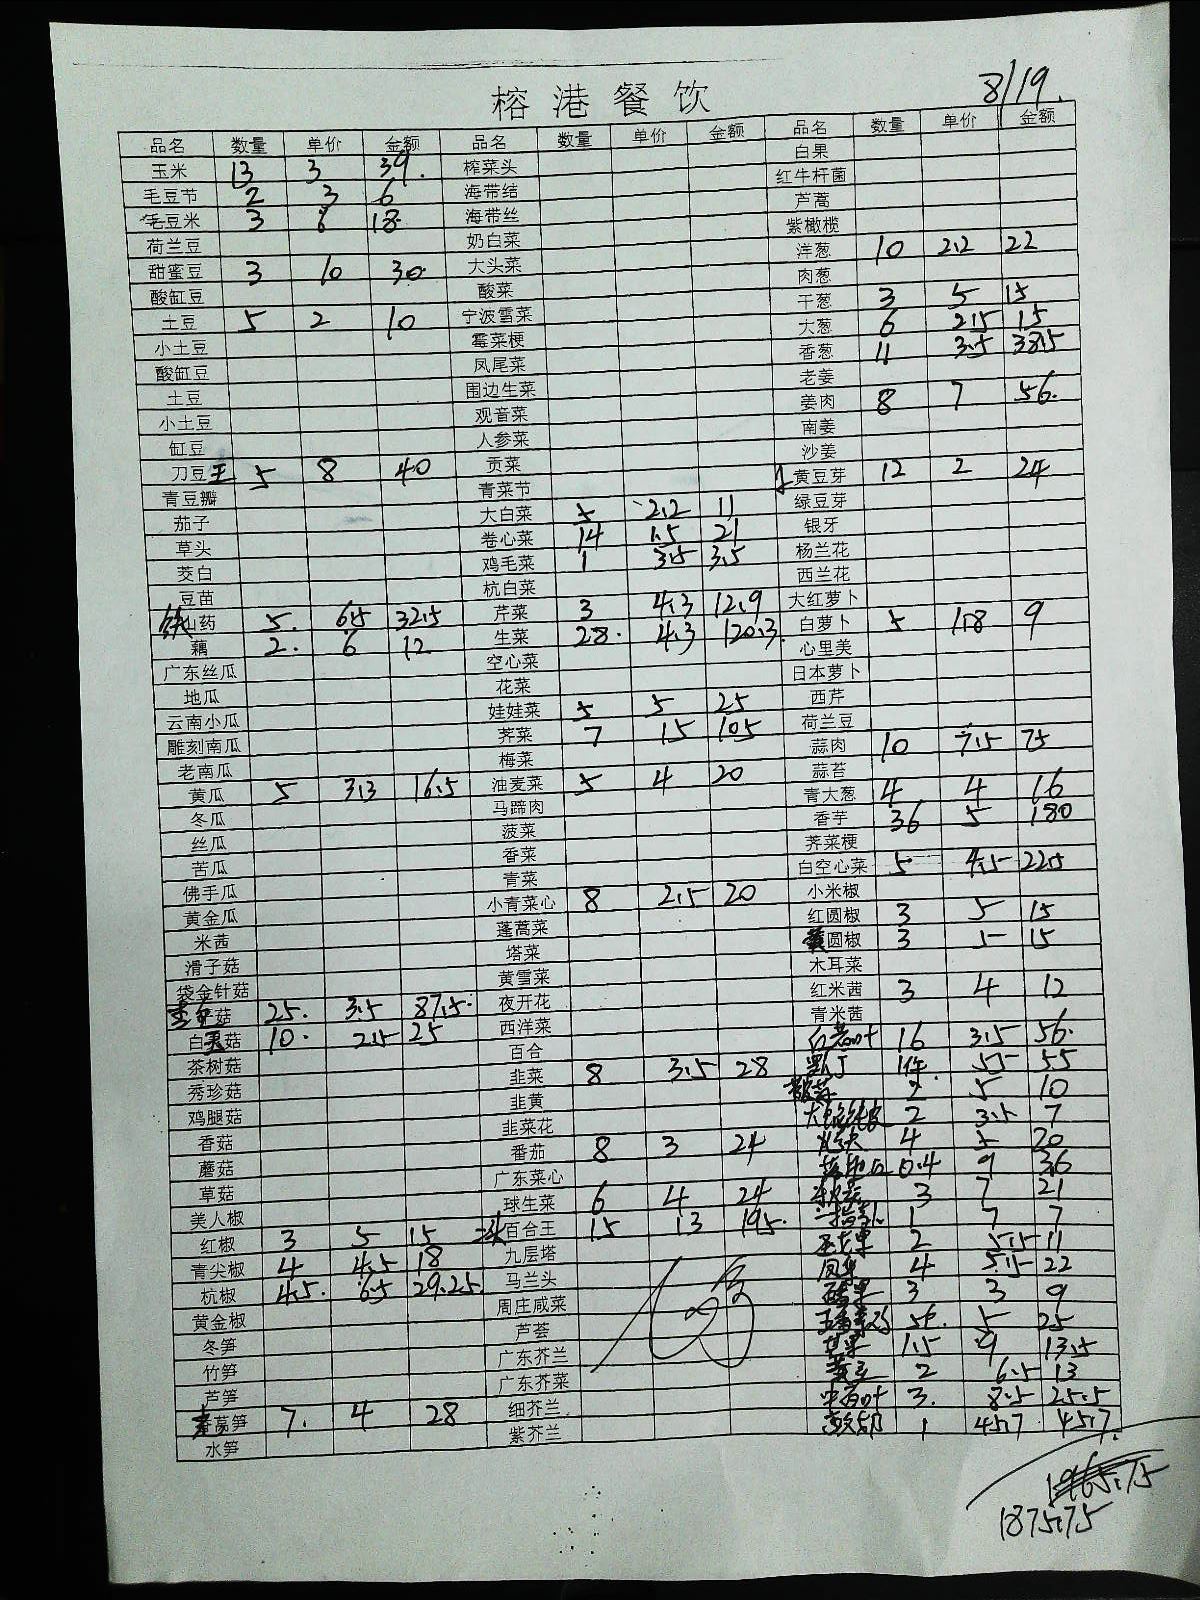 8/19.
榕港餐饮
品名 数量 单价 金额 品名 数量 单价 金额 品名 数量 单价 金额
玉米 13 3 39. 榨菜头 白果
毛豆节 2 3 6 海带结 红牛杆菌
毛豆米 3 6 18. 海带丝 芦蒿
荷兰豆 奶白菜 紫橄榄
甜蜜豆 3 10 30. 大头菜 洋葱 10 2.2 22
酸缸豆 酸菜 肉葱
土豆 5 2 10 宁波雪菜 干葱 3 5 15
小土豆 霉菜梗 大葱 6 2.5 15
酸缸豆 凤尾菜 香葱 11 3.5 38.5
土豆 围边生菜 老姜
小土豆 观音菜 姜肉 8 7 56.
缸豆 人参菜 南姜
刀豆王 5 8 40 贡菜 沙姜
青豆瓣 青菜节 黄豆芽 12 2 24
茄子 大白菜 5 2.2 11 绿豆芽
草头 卷心菜 14 1.5 21 银牙
茭白 鸡毛菜 1 3.5 3.5 杨兰花
豆苗 杭白菜 西兰花
铁山药 5. 6.5 32.5 芹菜 3 4.3 12.9 大红萝卜
藕 2. 6 12 生菜 28. 4.3 120.3. 白萝卜 5 1.8 9
广东丝瓜 空心菜 心里美
地瓜 花菜 日本萝卜
云南小瓜 娃娃菜 5 5 25 西芹
雕刻南瓜 荠菜 7 15 105 荷兰豆
老南瓜 梅菜 蒜肉 10 7.5 75
黄瓜 5 3.3 16.5 油麦菜 5 4 20 蒜苔
冬瓜 马蹄肉 青大葱 4 4 16
丝瓜 菠菜 香芋 36 5 180
苦瓜 香菜 荠菜梗
佛手瓜 青菜 白空心菜 5 4.5 22.5
黄金瓜 小青菜心 8 2.5 20 小米椒
米茜 蓬蒿菜 红圆椒 3 5 15
滑子菇 塔菜 黄圆椒 3 5 15
袋金针菇 黄雪菜 木耳菜
菇 25. 3.5 87.5. 夜开花 红米茜 3 4 12
白灵菇 10. 2.5 25 西洋菜 青米茜
茶树菇 百合 叶 16 3.5 56.
秀珍菇 韭菜 8 3.5 28 1件 55 55
鸡腿菇 韭黄 2 5 10
香菇 韭菜花 2 3.5 7
蘑菇 番茄 8 3 24 4 5 20
草菇 广东菜心 0.4 9 3.6
美人椒 球生菜 6 4 24 3 7 21
红椒 3 5 15 百合王 15 13 195. 1 7 7
青尖椒 4 4.5 18 九层塔 2 5.5 11
杭椒 4.5. 6.5 29.25. 马兰头 4 5.5 22
黄金椒 周庄咸菜 3 3 9
冬笋 芦荟 5 25
竹笋 广东芥兰 苹果 1.5 9 13.5
芦笋 广东芥菜 2 6.5 13
莴笋 7. 4 28 细芥兰 叶 3. 8.5 25.5
水笋 紫芥兰 1 45.7 45.7.
1875.75